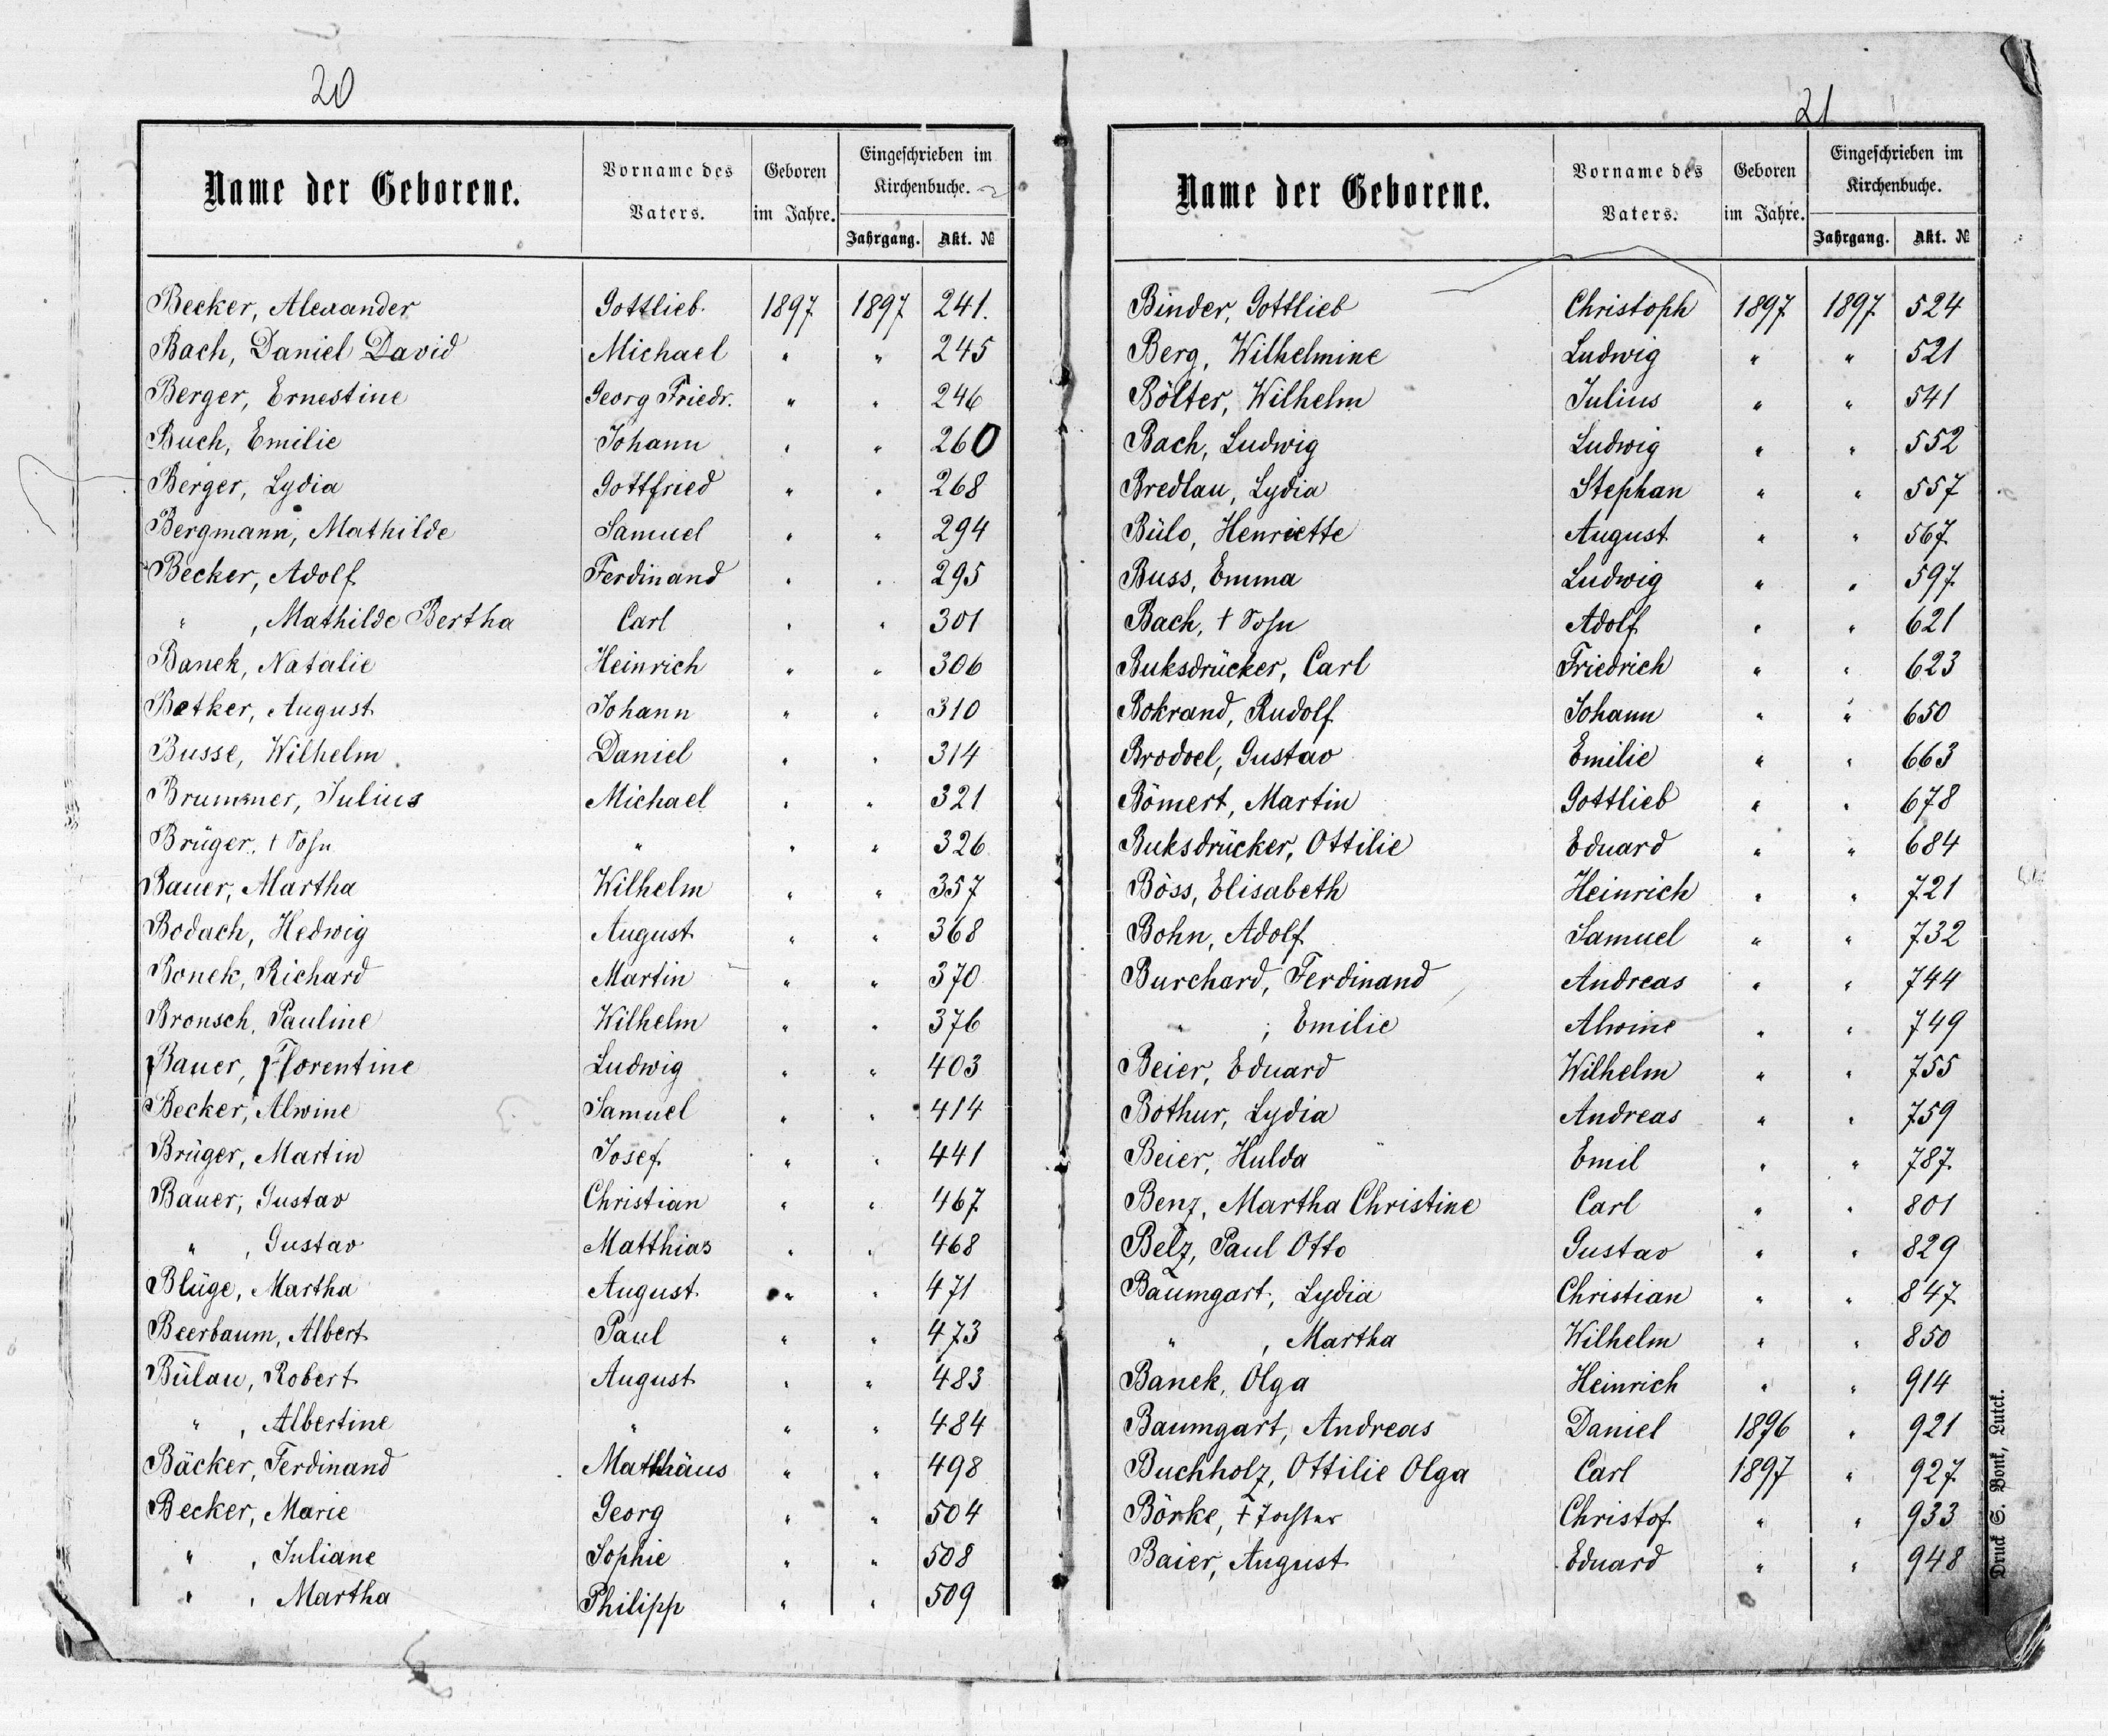 20
Name der Geborene.
Vorname des Vaters.
Geboren im Jahre.
Eingeschrieben im Kirchenbuche.
Jahrgang.
Akt. №
Becker, Alexander Gottlieb 1897 1897 241.
Bach, Daniel David Michael " " 245
Berger, Ernestine Georg Friedr. " " 246
Buch, Emilie Johann " " 260
Berger, Lydia Gottfried " " 268
Bergmann, Mathilde Samuel " " 294
Becker, Adolf Ferdinand " " 295
" , Mathilde Bertha Carl " " 301
Banek, Natalie Heinrich " " 306
Betker, August Johann " " 310
Busse, Wilhelm Daniel " " 314
Brummer, Julius Michael " " 321
Brüger, † Sohn " " " 326
Bauer, Martha Wilhelm " " 357
Bodach, Hedwig August " " 368
Bonek, Richard Martin " " 370
Bronsch, Pauline Wilhelm " " 376
Bauer, Florentine Ludwig " " 403
Becker, Alwine Samuel " " 414
Brüger, Martin Josef " " 441
Bauer, Gustav Christian " " 467
" , Gustav Matthias " " 468
Blüge, Martha August " " 471
Beerbaum, Albert Paul " " 473
Bülau, Robert August " " 483
" , Albertine " " " 484
Bäcker, Ferdinand Matthäus " " 498
Becker, Marie Georg " " 504
" , Juliane Sophie " " 508
" , Martha Philipp " " 509
21
Name der Geborene.
Vorname des Vaters.
Geboren im Jahre.
Eingeschrieben im Kirchenbuche.
Jahrgang.
Akt. №
Binder, Gottlieb Christoph 1897 1897 524
Berg, Wilhelmine Ludwig " " 521
Bölter, Wilhelm Julius " " 541
Bach, Ludwig Ludwig " " 552
Bredlau, Lydia Stephan " " 557
Bülo, Henriette August " " 567
Buss, Emma Ludwig " " 597
Bach, † Sohn Adolf " " 621
Buksdrücker, Carl Friedrich " " 623
Bokrand, Rudolf Johann " " 650
Brodoel, Gustav Emilie " " 663
Bömert, Martin Gottlieb " " 678
Buksdrücker, Ottilie Eduard " " 684
Böss, Elisabeth Heinrich " " 721
Bohn, Adolf Samuel " " 732
Burchard, Ferdinand Andreas " " 744
" , Emilie Alwine " " 749
Beier, Eduard Wilhelm " " 755
Bothur, Lydia Andreas " " 759
Beier, Hulda Emil " " 787
Benz, Martha Christine Carl " " 801
Belz, Paul Otto Gustav " " 829
Baumgart, Lydia Christian " " 847
" , Martha Wilhelm " " 850
Banek, Olga Heinrich " " 914
Baumgart, Andreas Daniel 1896 " 921
Buchholz, Ottilie Olga Carl 1897 " 927
Börke, † Tochter Christof " " 933
Baier, August Eduard " " 948
Druck S. Bonk, Lutck.